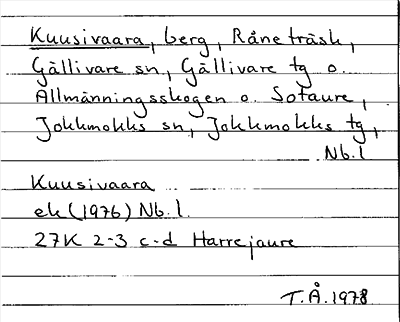 Kuusivaara, berg, Råneträsk,
Gällivare sn, Gällivare tg o.
Allmänningsskogen o. Sotaure,
Jokkmokks sn, Jokkmokks tg,
Nb.l
Kuusivaara
ek (1976) Nb.l.
27K 2-3 c-d Harrejaure
T.Å.1978